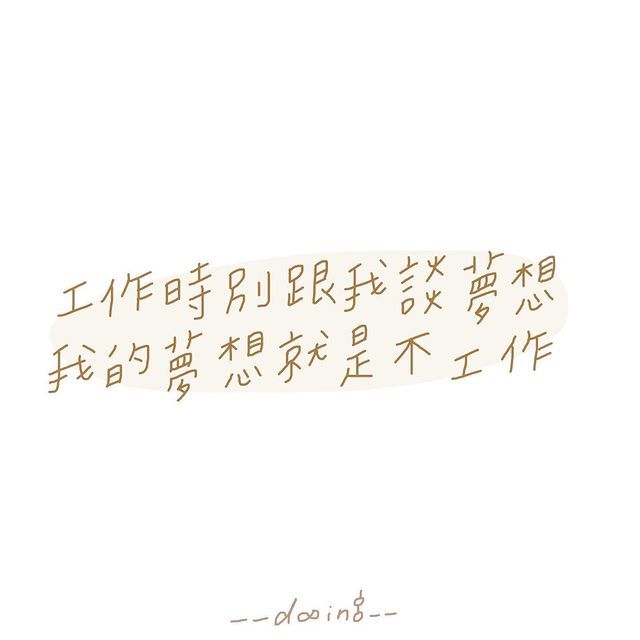 工作時別跟我談夢想
我的夢想就是不工作
--dooing--